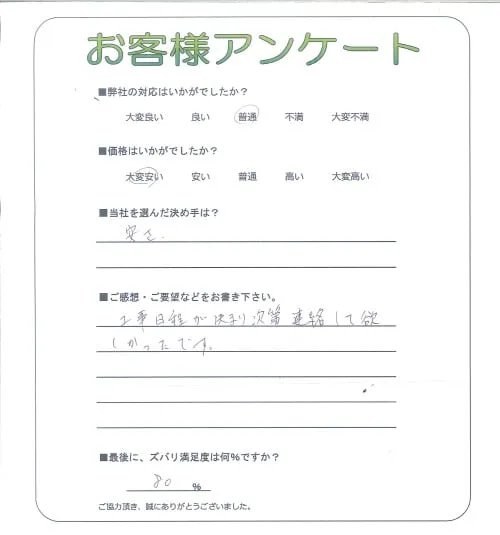 お客様アンケート
■弊社の対応はいかがでしたか？
大変良い 良い 普通 不満 大変不満
■価格はいかがでしたか？
大変安い 安い 普通 高い 大変高い
■当社を選んだ決め手は？
安さ。
■ご感想・ご要望などをお書き下さい。
工事日程が決まり次第連絡して欲
しかったです。
■最後に、ズバリ満足度は何%ですか？
80 %
ご協力頂き、誠にありがとうございました。